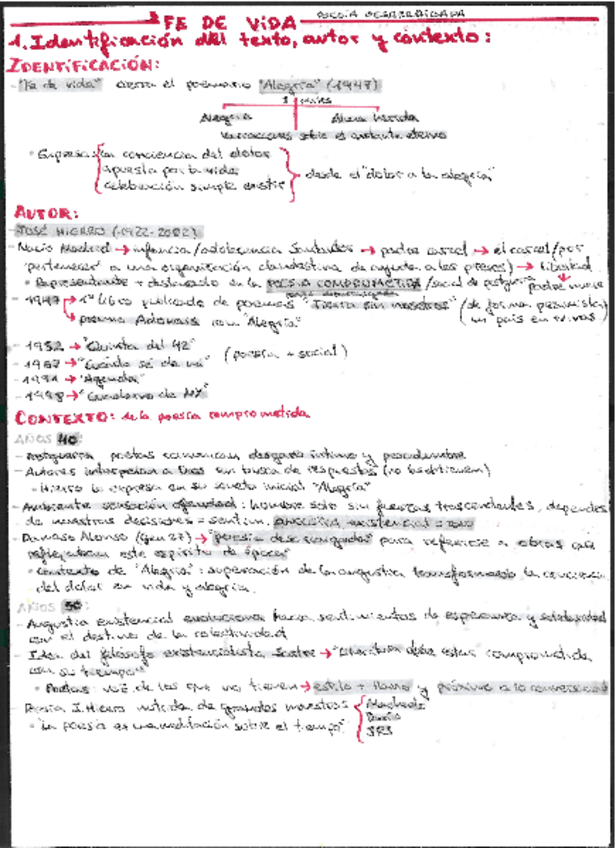 FE DE VIDA POESÍA DESARRAIGADA
1. Identificación del texto, autor y contexto:
IDENTIFICACIÓN:
- "Fe de vida" cierra el poemario "Alegría" (1947)
Alegría
Variaciones sobre el instante eterno
• Expresa: la conciencia del dolor
apuesta por la vida
celebración simple existir
desde el "dolor a la alegría"
AUTOR:
- JOSÉ HIERRO (1922-2002)
- Nació Madrid → infancia/adolescencia Santander → padre carcel → el carcel (por
"pertenecer" a una organización clandestina de ayuda a los presos) → libertad
padre muere
• Representante + destacado en la POESÍA COMPROMETIDA /social de postguerra
- 1947 → 1er libro publicado de poemas "Tierra sin nosotros" (de forma pesimista,
un país en ruinas)
→ premio Adonais con "Alegría"
- 1952 → "Quinta del 42"
- 1957 → "Cuánto sé de mí" (poesía + social)
- 1991 → "Agenda"
- 1998 → "Cuaderno de NY"
CONTEXTO: de la poesía comprometida
AÑOS 40:
- Postguerra, poetas comunican desgarro íntimo y pesadumbre
- Autores interpelan a Dios en busca de respuestas (no la obtienen)
• Hierro lo expresa en su soneto inicial "Alegría"
- Ambiente sensación orfandad: hombre solo sin fuerzas trascendentes, depende
de nuestras decisiones = sentim. angustia existencial =
- Damaso Alonso (Gen 27) → "poesía desarraigada" para referirse a obras que
reflejaban este espíritu de época
• Contexto de "Alegría": superación de la angustia transformando la conciencia
del dolor en vida y alegría.
AÑOS 50:
- Angustia existencial evoluciona hacia sentimientos de esperanza y solidaridad
con el destino de la colectividad
- Idea del filósofo existencialista Sartre → "Literatura debe estar comprometida
con su tiempo"
• Poetas voz de los que no tienen → estilo + llano y próximo a lo conversacional
- Poesía J. Hierro nutrida de grandes maestros: Machado
Darío
JRJ
• "La poesía es una meditación sobre el tiempo"